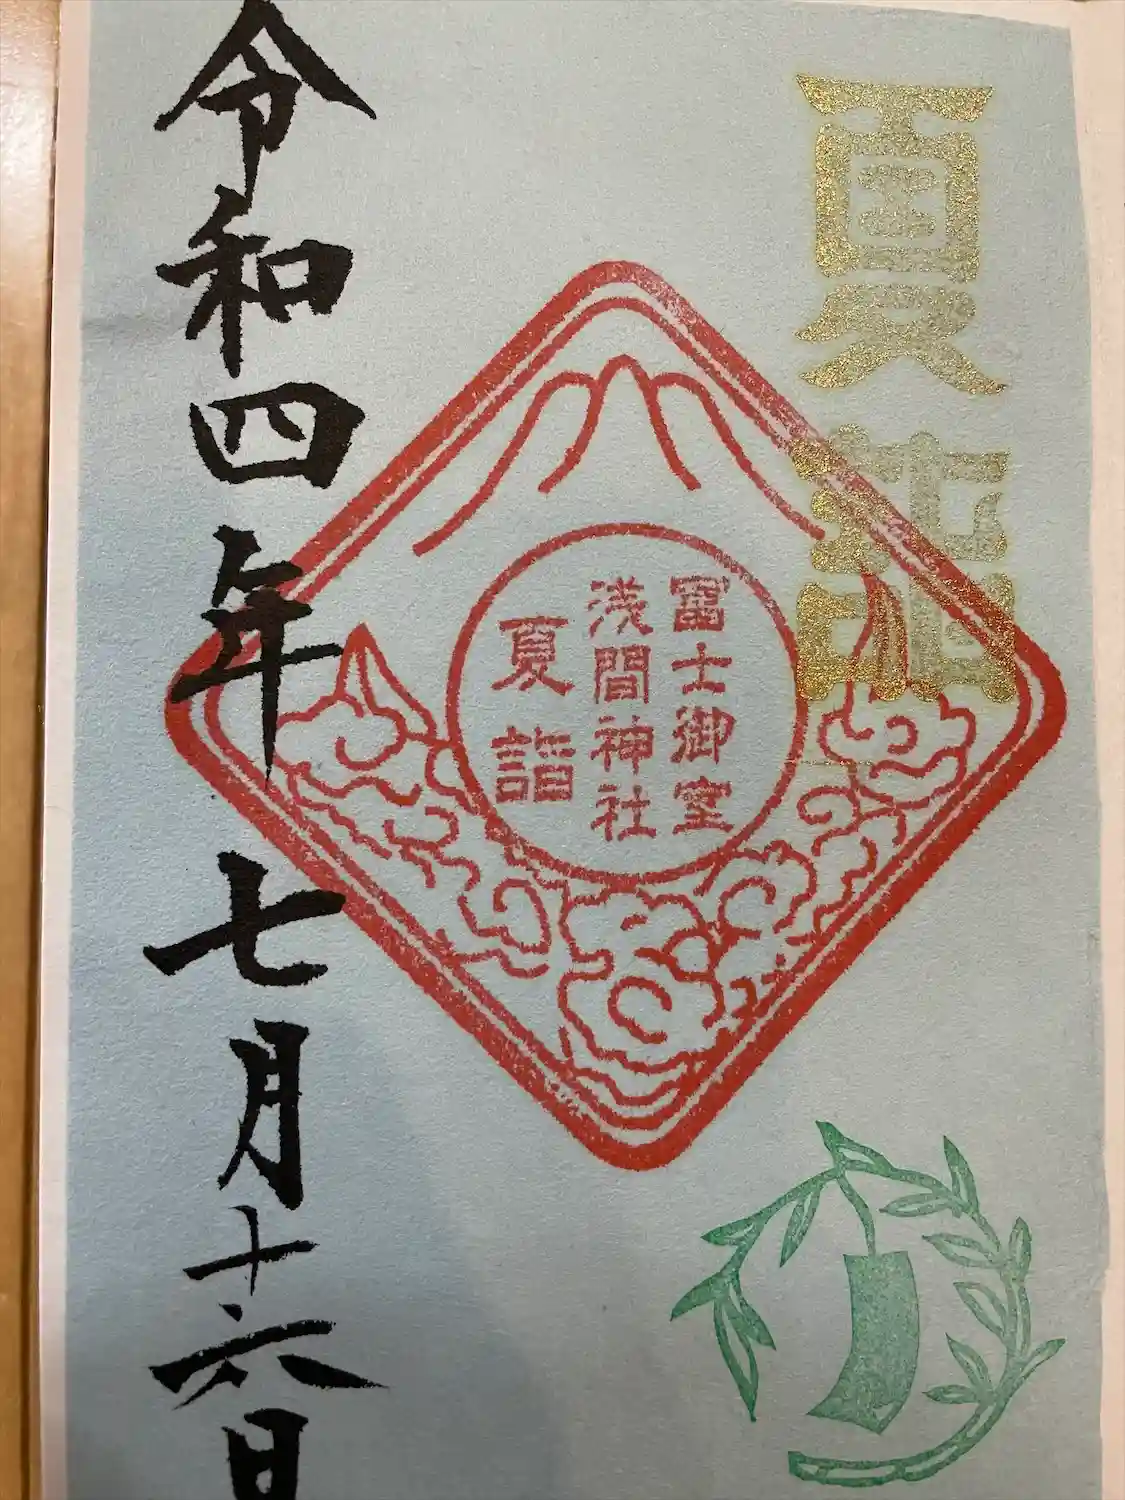 夏詣
冨士御室
浅間神社
夏詣
令和四年七月十六日